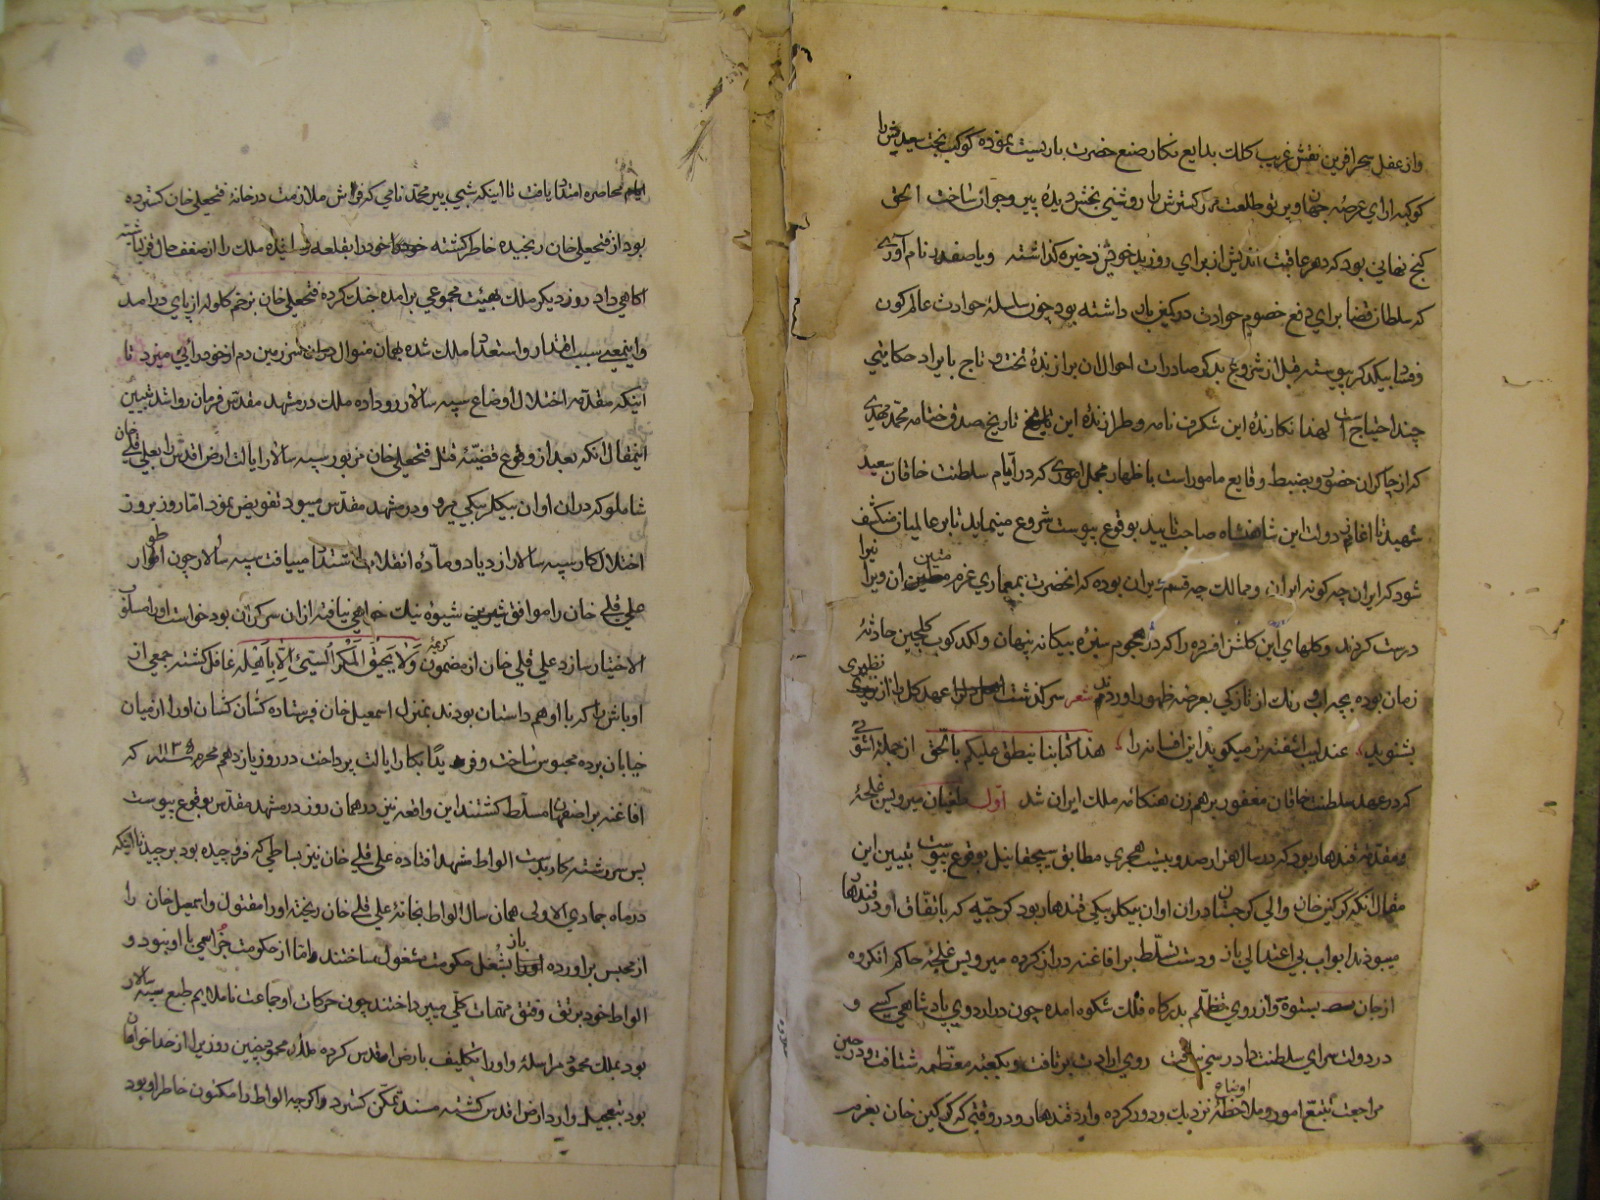 واز عقل سحرآفرین نقش غریب کلک بدایع نگار صنع حضرت باریست نموده کوکب بخت سعیدش را
کوکبه ارای عرصه جهان وپرتو طلعت مهر کسترش را روشنی بخش دیده پیر وجوان ساخت الحق
کنج نهانی بود که دهر عاقبت اندیش از برای روز بد خویش ذخیره کذاشته ویا صفدر نام آوری
که سلطان قضا برای دفع خصوم حوادث در کیفر یاد داشته بود چون سلسلهٔ حوادث عالم کون
وفساد بیکدکر پیوسته قبل از شروع بذکر صادرات احوال ان برازندهٔ تخت و تاج بایراد حکایتی
چند احتیاج است لهذا نکارندهٔ این شکرف نامه وطرازندهٔ این تاریخ صدق ختامه محمد مهدی
که از چاکران حضور وبضبط وقایع مامور است باظهار مجمل اموری که در ایام سلطنت خاقان سعید
شهید تا اغاز دولت این شاهنشاه صاحب تایید بوقوع پیوست شروع مینماید تا بر عالمیان منکشف
شود که ایران چه کونه ایران وممالک چه قسم ویران بوده که انحضرت بمعماری عزم متین ان ویرانیرا
درست کردند وکلهای این کلشن افسرده را که در هجوم سبزهٔ بیکانه پنهان ولکدکوب کلچین حادثهٔ
زمان بوده بچه اب ورنک از تازکی بعرصه ظهور اوردند شعر سرکذشت عهد کل را از نظیری
بشنوید عندلیب اشفته تر میکوید این افسانه را هذا کتابنا ینطق علیکم بالحق از جمله اشوبی
که در عهد سلطنت خاقان مغفور برهم زن هنکامه ملک ایران شد اول طغیان میرویس غلجهٔ
ومقدمهٔ قندهار بود که در سال هزار صد وبیست هجری مطابق سیچقانئیل بوقوع پیوست تبیین این
مقال انکه کرکین خان والی کرجستان دران اوان بیکلربیکی قندهار بود کرجیه که باتفاق او در قندهار
میبودند ابواب بی اعتدالی باز ودست تسلط بر افاغنه دراز کرده میرویس غلجهٔ حاکم افکروه
ازجان بستوه واز روی تظلم بدرکاه فلک شکوه امده چون در اردوی پادشاهی کسی و
در دولت سرای سلطنت دادرسی نیافت روی ارادت برتافت وبکعبهٔ معظمه شتافت ودر حین
مراجعت تتبع امور وملاحظهٔ اوضاع نزدیک ودور کرده وارد قندهار ودر وقتی که کرکین خان بعزم
ایام محاصره امتداد یافت تا اینکه شبی پیر محمد نامی که فراش ملازمت در خانهٔ فتحعلی خان کسترده
بود از فتحعلی خان رنجیده خاطر کشته خود را بقلعه رسانیده ملک را از ضعف حال قزلباشیه
آکاهی داد روز دیکر ملک بهیئت مجموعی برامده جنک کرده فتحعلی خان بزخم کلوله از پای درامد
واینمعنی سبب اقتدار واستعداد ملک شده بهمان منوال دران سرزمین دم از خودرأیی میزد تا
اینکه مقدمه اختلال اوضاع سپه سالار رو داده ملک در مشهد مقدس فرمان روا شد تبیین
اینمقال انکه بعد از وقوع قضیهٔ قتل فتحعلی خان مزبور سپه سالار ایالت ارض اقدس را بعلی قلی خان
شاملو که دران اوان بیکلربیکی مرو ودر مشهد مقدس میبود تفویض نمود اما روز بروز
اختلال کار سپه سالار ازدیاد ومادهٔ انقلاب اشتداد مییافت سپه سالار چون اطوار
علی قلی خان را موافق شیوهٔ نیک خواهی نیافته ازان سرکران بود خواست اورا مسلوب
الاختیار سازد علی قلی خان از مضمون کریمهٔ وَلا یَحیقُ المَکْرُ السَّیِّئُ اِلّا بِاَهْلِه غافل کشته جمعی از
اوباش را که با او هم داستان بودند بمنزل اسمعیل خان فرستاده کشان کشان اورا از میان
خیابان برده محبوس ساخت وفرید بکار ایالت پرداخت در روز یازدهم محرم سنه ۱۱۳۵ که
افاغنه بر اصفهان مسلط کشتند این واقعه نیز در همان روز در مشهد مقدس بوقوع پیوست
پس سررشته کار بدست الواط مشهد افتاده علی قلی خان نیز بساطی که فرو چیده بود برچید تا اینکه
در ماه جمادی الاولی همان سال الواط بخانهٔ علی قلی خان ریخته اورا مقتول واسمعیل خان را
از محبس براورده باز بشغل حکومت مشغول ساختند واما از حکومت جز اسمی با او نبود و
الواط خود برتق وفتق مهمات کلی میپرداختند چون حرکات اوجماعت ناملایم طبع سپه سالار
بود بملک محمود مراسله واورا تکلیف بارض اقدس کرده ملک محمود چنین روزیرا از خدا خواهان
بود بتعجیل وارد ارض اقدس کشته مسند تمکن کسترد واکرچه الواط را مکنون خاطر او بود